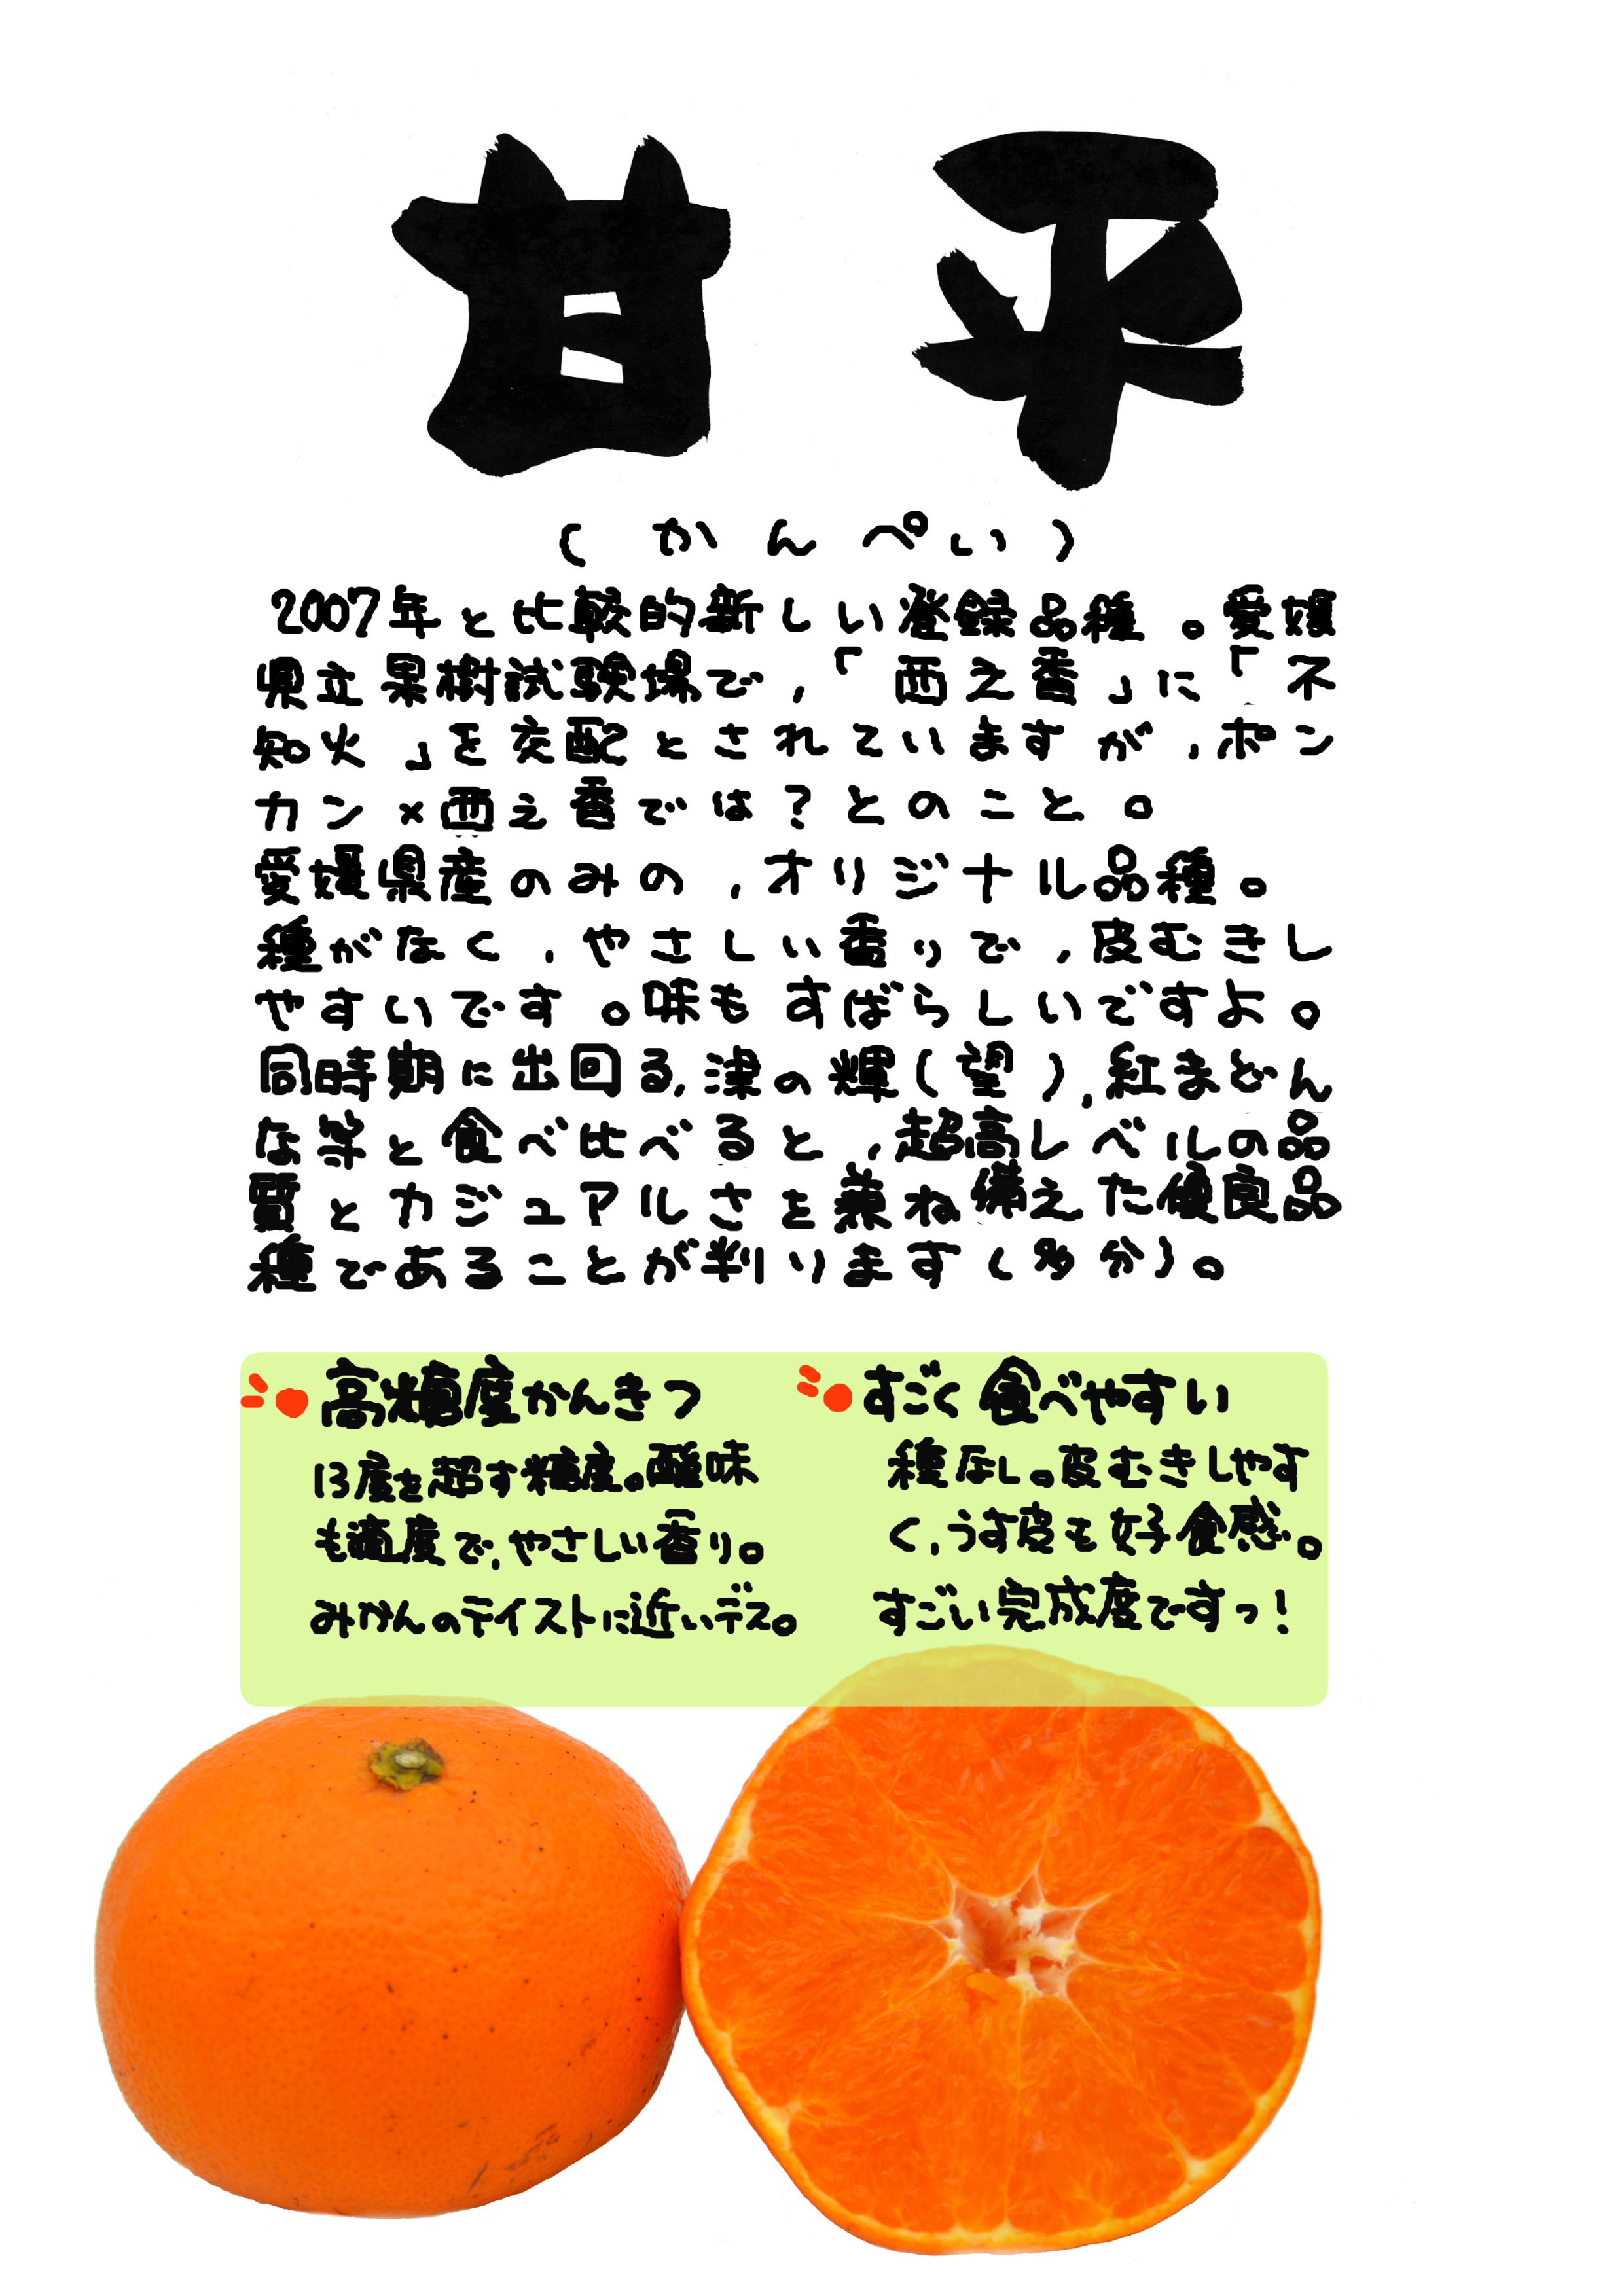 甘平
(かんぺい)
2007年と比較的新しい登録品種。愛媛
県立果樹試験場で,「西之香」に「不
知火」を交配とされていますが,ポン
カン×西之香では?とのこと。
愛媛県産のみの,オリジナル品種。
種がなく,やさしい香りで,皮むきし
やすいです。味もすばらしいですよ。
同時期に出回る,津の輝(望),紅まどん
な等と食べ比べると,超高レベルの品
質とカジュアルさを兼ね備えた優良品
種であることが判ります(多分)。
高糖度かんきつ
13度を超す糖度。酸味
も適度で,やさしい香り。
みかんのテイストに近いデス。
すごく食べやすい
種なし。皮むきしやす
く,うす皮も好食感。
すごい完成度ですっ!